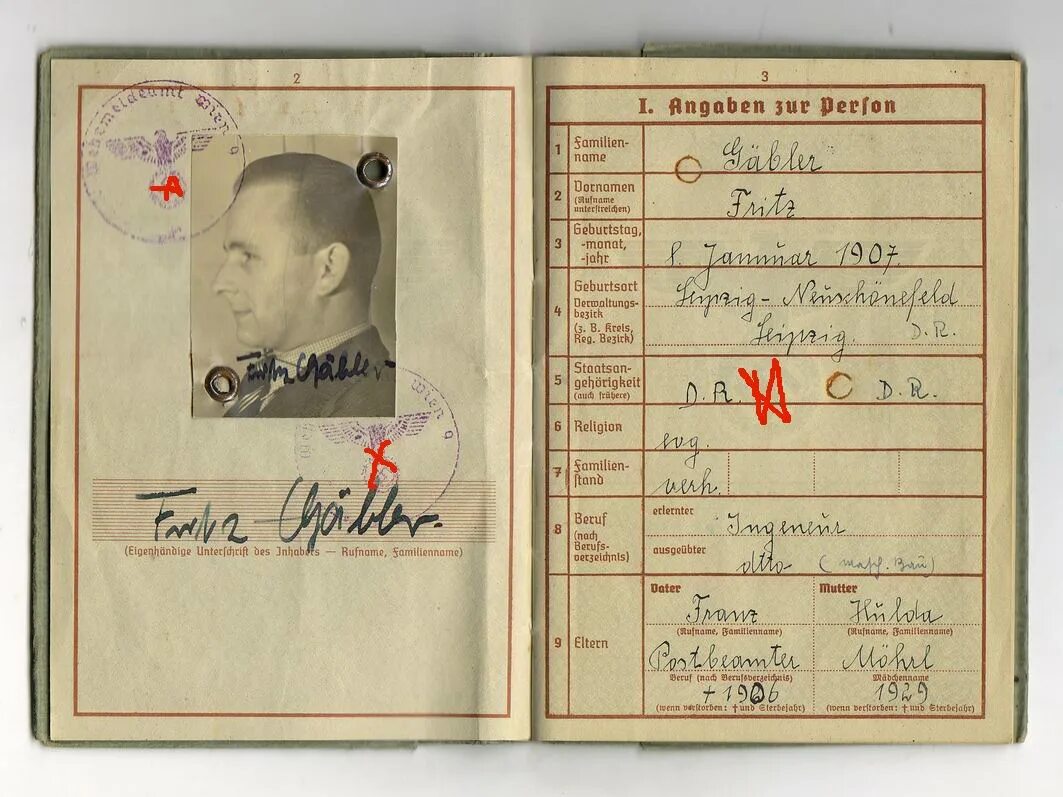 2
Wehrmeldeamt Wien 9
Fritz Gäbler
Wien 9
Fritz Gäbler.
(Eigenhändige Unterschrift des Inhabers — Rufname, Familienname)
3
I. Angaben zur Person
1 Familien-
name
Gäbler
2 Vornamen
(Rufname
unterstreichen)
Fritz
3 Geburtstag,
-monat,
-jahr
8. Januar 1907.
4 Geburtsort
Verwaltungs-
bezirk
(z. B. Kreis,
Reg. Bezirk)
Leipzig-Neuschönefeld
Leipzig. D.R.
5 Staatsan-
gehörigkeit
(auch frühere)
D.R. D.R.
6 Religion
evg.
7 Familien-
stand
verh.
8 Beruf
(nach
Berufs-
verzeichnis)
erlernter
Ingeneur
ausgeübter
dtto (masch. Bau)
9 Eltern
Vater Mutter
Franz Hulda
(Rufname, Familienname) (Rufname, Familienname)
Postbeamter Möhrl
Beruf (nach Berufsverzeichnis) Mädchenname
† 1926 1929
(wenn verstorben: † und Sterbejahr) (wenn verstorben: † und Sterbejahr)